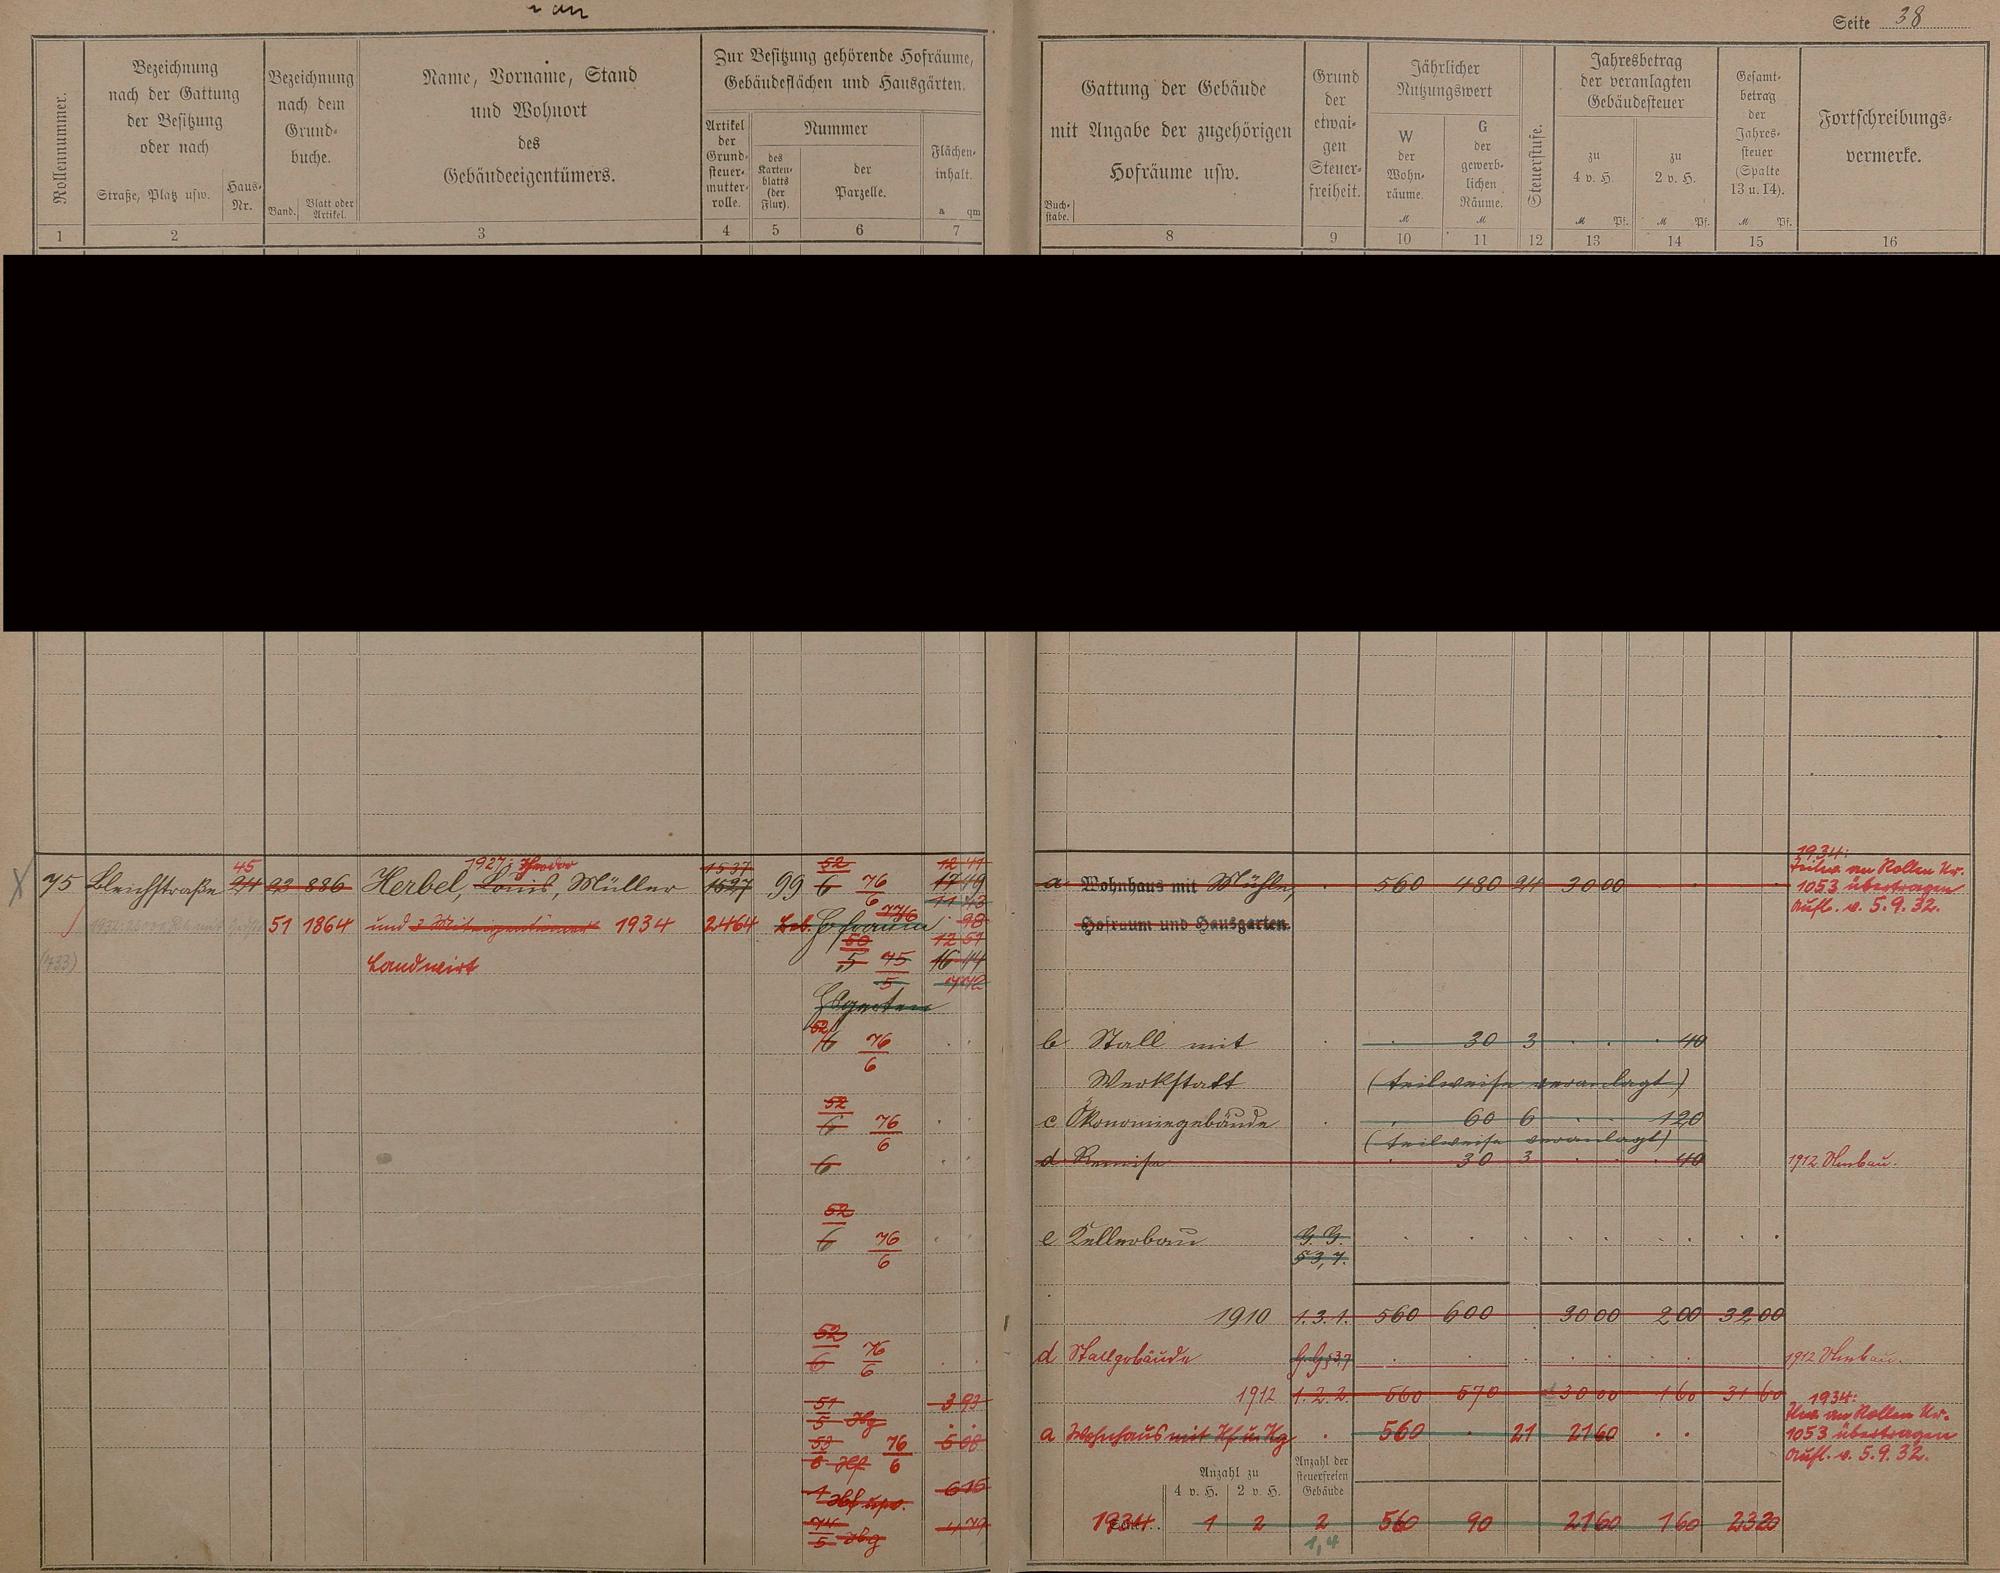 Seite 38
Rollennummer.
Bezeichnung
nach der Gattung
der Besitzung
oder nach
Straße, Platz usw.
Haus-
Nr.
Bezeichnung
nach dem
Grund-
buche.
Band.
Blatt oder
Artikel.
Name, Vorname, Stand
und Wohnort
des
Gebäudeeigentümers.
Zur Besitzung gehörende Hofräume,
Gebäudeflächen und Hausgärten.
Artikel
der
Grund-
steuer-
mutter-
rolle.
Nummer
des
Karten-
blatts
(der
Flur).
der
Parzelle.
Flächen-
inhalt.
a qm
1 2 3 4 5 6 7
Gattung der Gebäude
mit Angabe der zugehörigen
Hofräume usw.
Buch-
stabe.
Grund
der
etwai-
gen
Steuer-
freiheit.
Jährlicher
Nutzungswert
W
der
Wohn-
räume.
M
G
der
gewerb-
lichen
Räume.
M
Steuerstufe.
Jahresbetrag
der veranlagten
Gebäudesteuer
zu
4 v. H.
M Pf.
zu
2 v. H.
M Pf.
Gesamt-
betrag
der
Jahres-
steuer
(Spalte
13 u. 14).
M Pf.
Fortschreibungs-
vermerke.
8 9 10 11 12 13 14 15 16
45 1927: Theodor 1537 52 12 41
75 Bleichstraße 93 886 Herbel, Louis, Müller 1627 99 6 76/6 17 19
51 1864 und 3 Miteigentümer 1934 2464 Hofraum 98
(733) Landwirt
50 12 57
5 75/5 16 14
Hsgarten
52/6 76/6
52/6 76/6
6
52/6 76/6
52/6 76/6
51/5 Hg 3 93
53/6 Hf 76/6 5 08
Hbf usw. 6 15
74/5 Hbg 4 79
1934:
Teilw. an Rollen Nr.
1053 übertragen
Aufl. v. 5.9.32.
a Wohnhaus mit Mühle, 560 480 24 30 00
Hofraum und Hausgarten.
b Stall mit 30 3 40
Werkstatt (teilweise veranlagt)
c Ökonomiegebäude 60 6 1 20
(teilweise veranlagt)
d Remise 30 3 40 1912 Umbau.
e Kellerbau G. G.
§ 3,7.
1910 1.3.1. 560 600 30 00 2 00 32 00
d Stallgebäude G.G. § 3,7 1912 Umbau.
1912 1.2.2. 560 570 30 00 1 60 31 60
1934:
an Rollen Nr.
1053 übertragen
Aufl. v. 5.9.32.
a Wohnhaus mit Hf u. Hg 560 21 21 60
Anzahl zu
4 v. H. 2 v. H.
Anzahl der
steuerfreien
Gebäude
1934 1 2 2 560 90 21 60 1 60 23 20
1,4